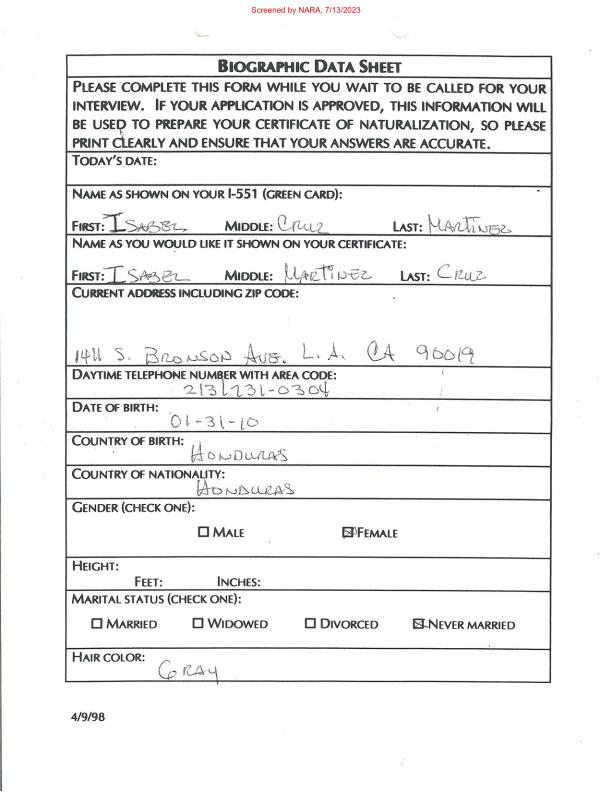 Screened by NARA, 7/13/2023
BIOGRAPHIC DATA SHEET
PLEASE COMPLETE THIS FORM WHILE YOU WAIT TO BE CALLED FOR YOUR
INTERVIEW. IF YOUR APPLICATION IS APPROVED, THIS INFORMATION WILL
BE USED TO PREPARE YOUR CERTIFICATE OF NATURALIZATION, SO PLEASE
PRINT CLEARLY AND ENSURE THAT YOUR ANSWERS ARE ACCURATE.
TODAY'S DATE:
NAME AS SHOWN ON YOUR I-551 (GREEN CARD):
FIRST: ISABEL MIDDLE: CRUZ LAST: MARTINEZ
NAME AS YOU WOULD LIKE IT SHOWN ON YOUR CERTIFICATE:
FIRST: ISABEL MIDDLE: MARTINEZ LAST: CRUZ
CURRENT ADDRESS INCLUDING ZIP CODE:
1411 S. BRONSON AVE. L.A. CA 90019
DAYTIME TELEPHONE NUMBER WITH AREA CODE:
213/731-0304
DATE OF BIRTH:
01-31-10
COUNTRY OF BIRTH:
HONDURAS
COUNTRY OF NATIONALITY:
HONDURAS
GENDER (CHECK ONE):
☐ MALE ☒ FEMALE
HEIGHT:
FEET: INCHES:
MARITAL STATUS (CHECK ONE):
☐ MARRIED ☐ WIDOWED ☐ DIVORCED ☒ NEVER MARRIED
HAIR COLOR:
GRAY
4/9/98